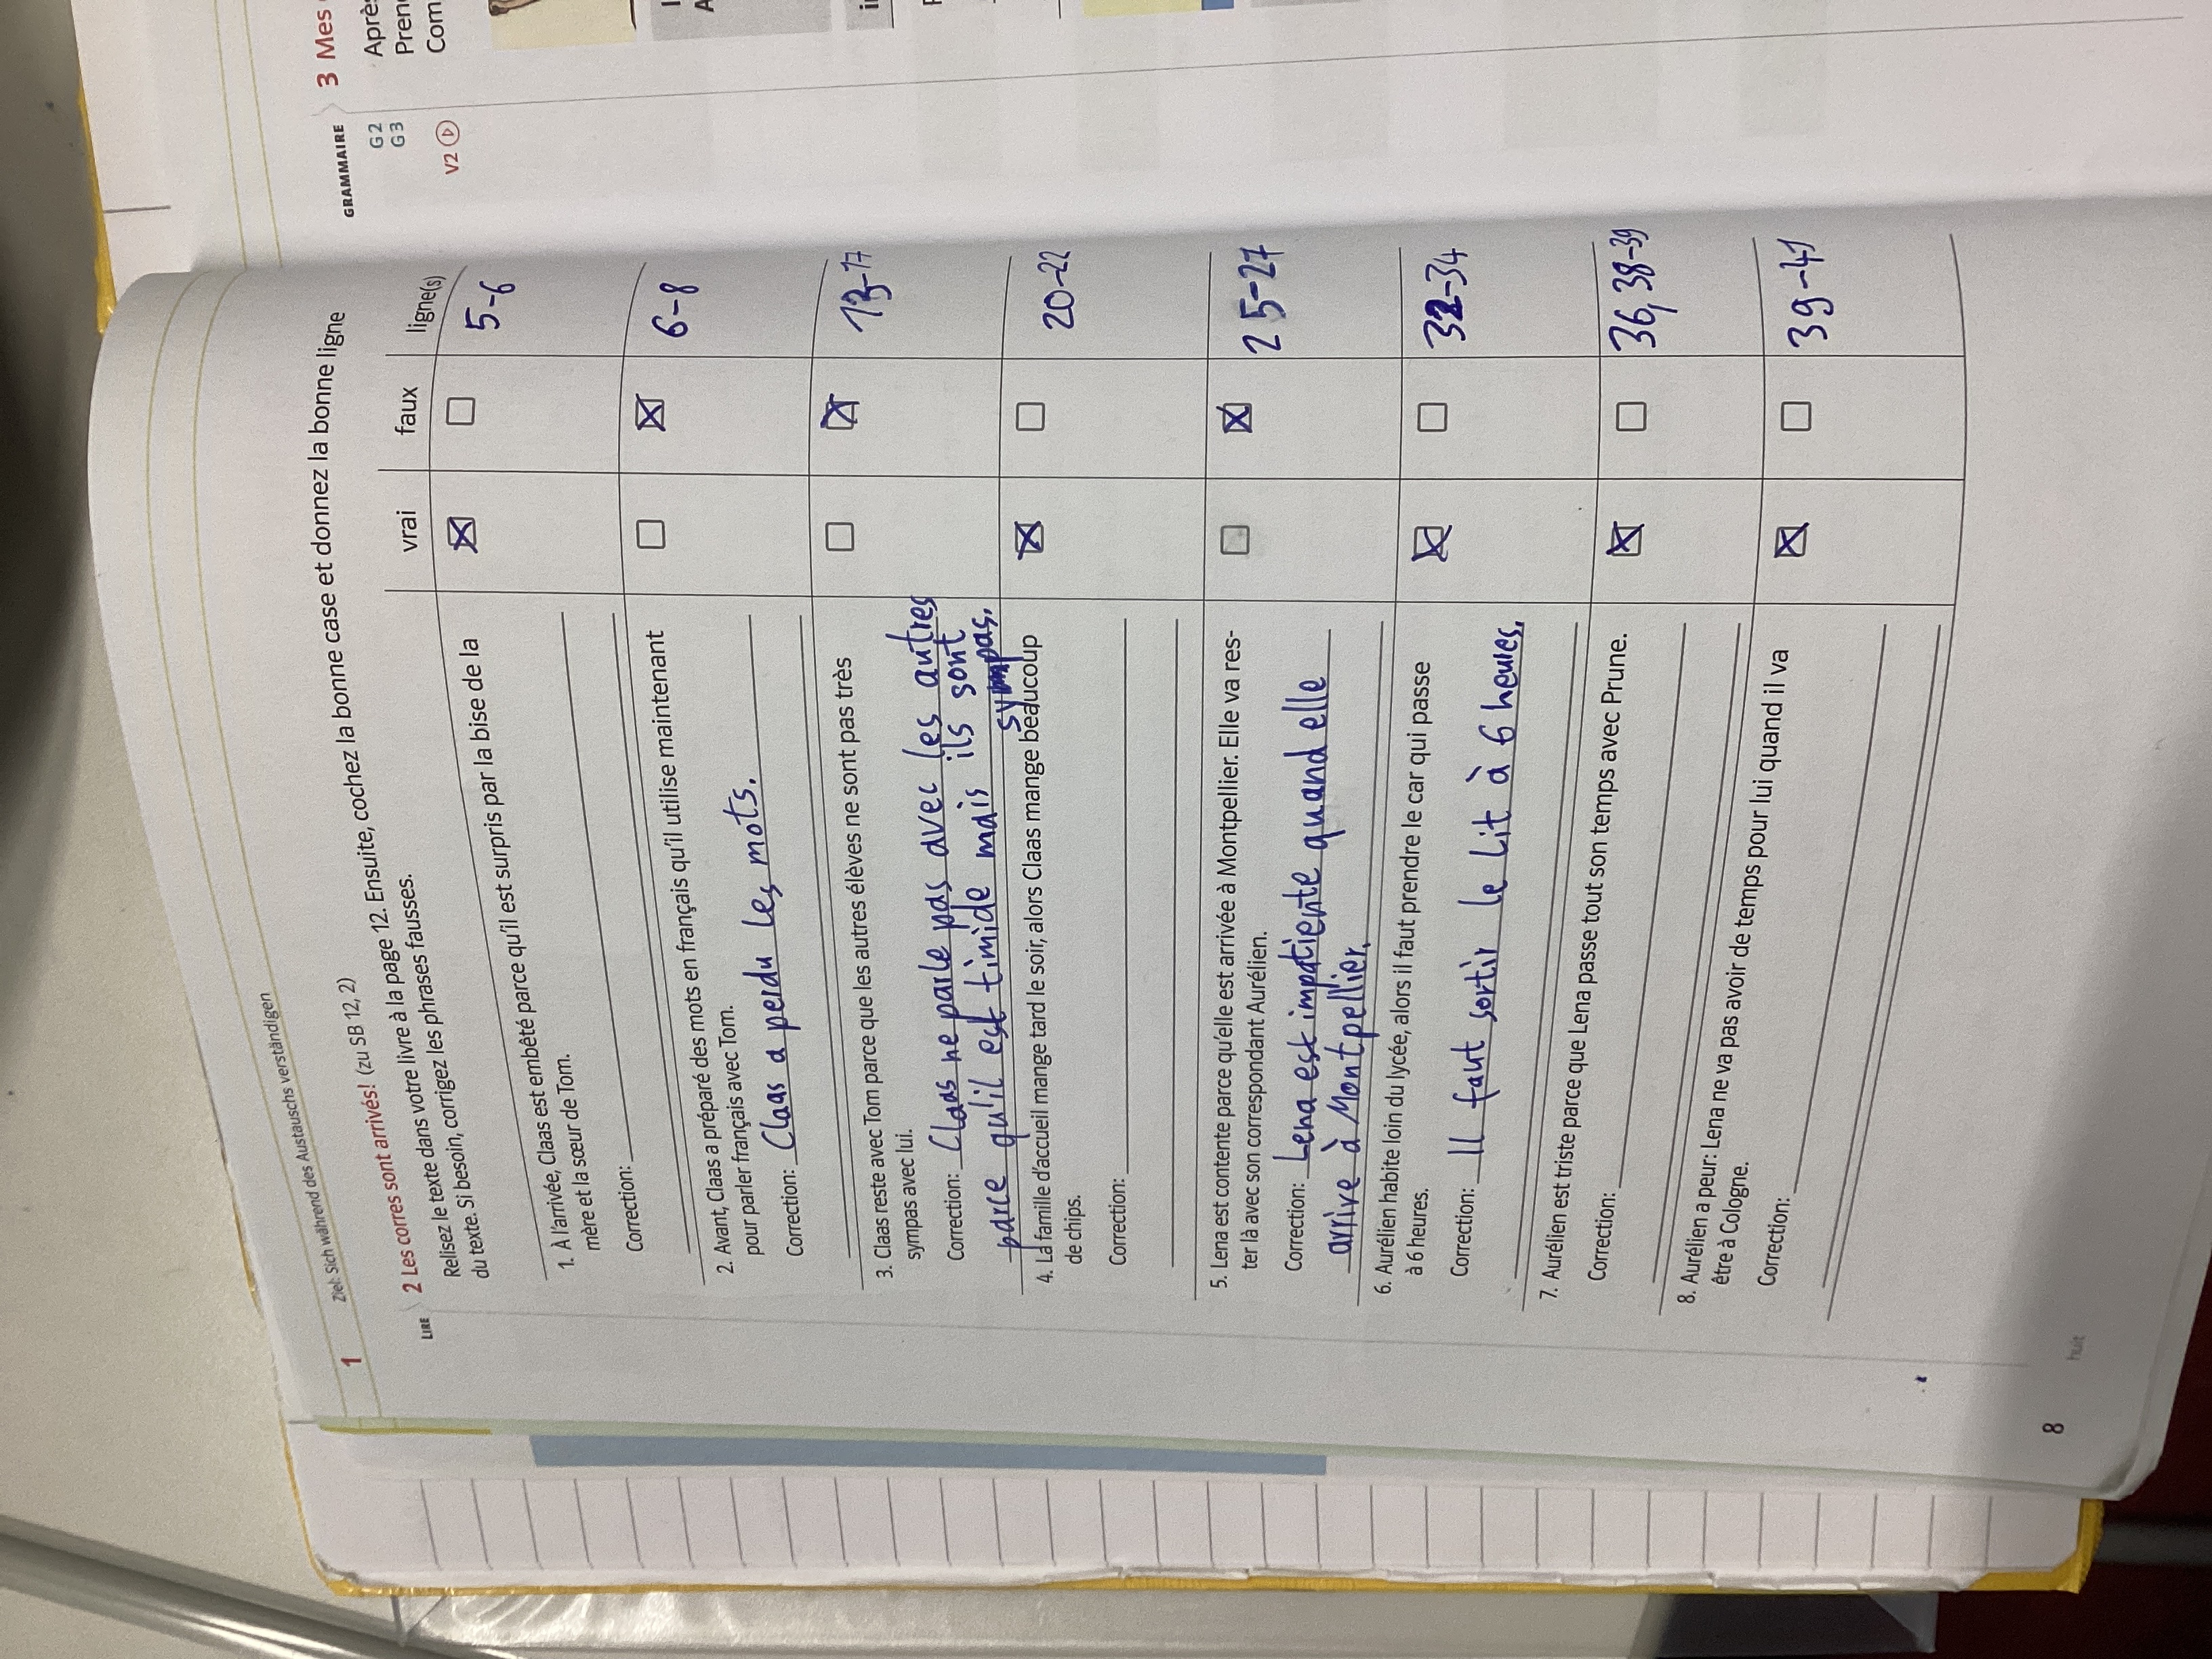 Ziel: Sich während des Austauschs verständigen
1
LIRE
2 Les corres sont arrivés! (zu SB 12, 2)
Relisez le texte dans votre livre à la page 12. Ensuite, cochez la bonne case et donnez la bonne ligne
du texte. Si besoin, corrigez les phrases fausses.
vrai faux ligne(s)
1. À l'arrivée, Claas est embêté parce qu'il est surpris par la bise de la
mère et la sœur de Tom.
5-6
Correction:
2. Avant, Claas a préparé des mots en français qu'il utilise maintenant
pour parler français avec Tom.
6-8
Correction: Claas a perdu les mots.
3. Claas reste avec Tom parce que les autres élèves ne sont pas très
sympas avec lui.
13-17
Correction: Claas ne parle pas avec les autres
parce qu'il est timide mais ils sont
sympas.
4. La famille d'accueil mange tard le soir, alors Claas mange beaucoup
de chips.
20-22
Correction:
5. Lena est contente parce qu'elle est arrivée à Montpellier. Elle va res-
ter là avec son correspondant Aurélien.
25-27
Correction: Lena est impatiente quand elle
arrive à Montpellier.
6. Aurélien habite loin du lycée, alors il faut prendre le car qui passe
à 6 heures.
32-34
Correction: Il faut sortir le lit à 6 heures.
7. Aurélien est triste parce que Lena passe tout son temps avec Prune.
36, 38-39
Correction:
8. Aurélien a peur: Lena ne va pas avoir de temps pour lui quand il va
être à Cologne.
39-41
Correction:
8
huit
GRAMMAIRE
G 2
G 3
V2
3 Mes
Après
Pren
Com